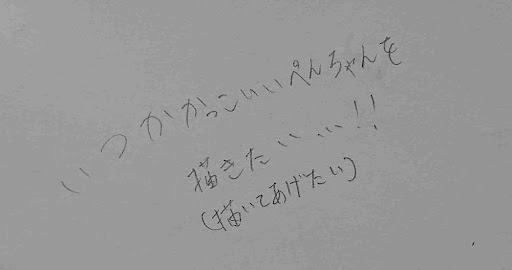 いつかかっこいいぺんちゃんを
描きたいぃぃ!!
(描いてあげたい)